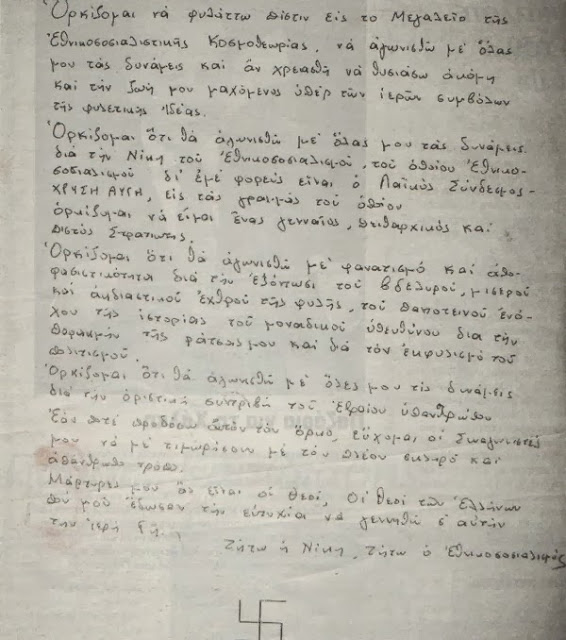 Ὁρκίζομαι νά φυλάττω πίστιν εἰς το Μεγαλεῖο τῆς
Ἐθνικοσοσιαλιστικῆς Κοσμοθεωρίας, νά ἀγωνισθῶ μέ ὅλας
μου τάς δυνάμεις καί ἄν χρειασθῇ νά θυσιάσω ἀκόμη
καί τήν ζωή μου μαχόμενος ὑπέρ τῶν ἱερῶν συμβόλων
τῆς φυλετικῆς Ἰδέας.
Ὁρκίζομαι ὅτι θά ἀγωνισθῶ μέ ὅλας μου τάς δυνάμεις
διά τήν Νίκη τοῦ Ἐθνικοσοσιαλισμοῦ, τοῦ ὁποίου Ἐθνικο-
σοσιαλισμοῦ δι' ἐμέ φορεύς εἶναι ὁ Λαϊκός Σύνδεσμος-
ΧΡΥΣΗ ΑΥΓΗ, εἰς τάς γραμμάς τοῦ ὁποίου
ὁρκίζομαι νά εἶμαι ἕνας γενναῖος, πειθαρχικός καί
πιστός Στρατιώτης.
Ὁρκίζομαι ὅτι θά ἀγωνισθῶ μέ φανατισμό καί ἀπο-
φασιστικότητα διά τήν ἐξόντωσι τοῦ βδελυροῦ, μιαροῦ
καί ἀηδιαστικοῦ ἐχθροῦ τῆς φυλῆς, τοῦ ταποτεινοῦ ἐνό-
χου τῆς ἱστορίας τοῦ μοναδικοῦ ὑπευθύνου δια τήν
παρακμήν τῆς ράτσας μου καί διά τόν ἐκφυλισμό τοῦ
πολιτισμοῦ.
Ὁρκίζομαι ὅτι θά ἀγωνισθῶ μέ ὅλες μου τίς δυνάμεις
διά τήν ὁριστική συντριβή τοῦ Ἑβραίου ὑπανθρώπου
Ἐάν ποτέ προδόσω αὐτόν τόν ὅρκο, εὔχομαι οἱ Συναγωνιστές
μου νά μέ τιμωρήσουν μέ τόν πλέον σκληρό καί
ἀπάνθρωπο τρόπο.
Μάρτυρές μου ἄς εἶναι οἱ Θεοί, Οἱ Θεοί τῶν Ἑλλήνων
πού μοῦ ἔδωσαν τήν εὐτυχία νά γεννηθῶ σ' αὐτήν
τήν ἱερή Γῆ.
Ζήτω ἡ Νίκη, Ζήτω ὁ Ἐθνικοσοσιαλισμός